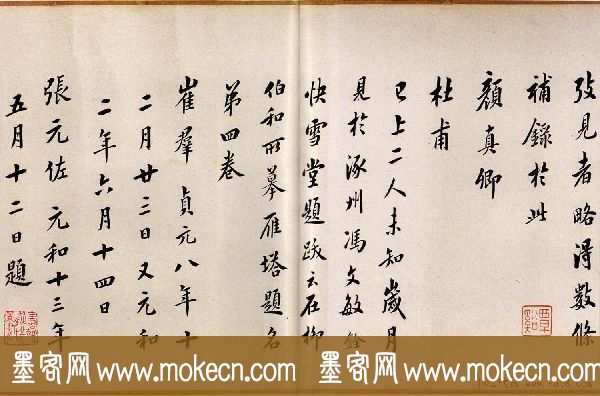 攷見者略得數條
補錄於此
顏真卿
杜甫
已上二人未知歲月
見於涿州馮文敏銓
快雪堂題跋云石柳
伯和所摹雁塔題名
第四卷
崔羣 貞元八年十
二月廿三日又元和
二年六月十四日
張元佐 元和十三年
五月十二日題
墨客网 www.mokecn.com 墨客网 www.mokecn.com